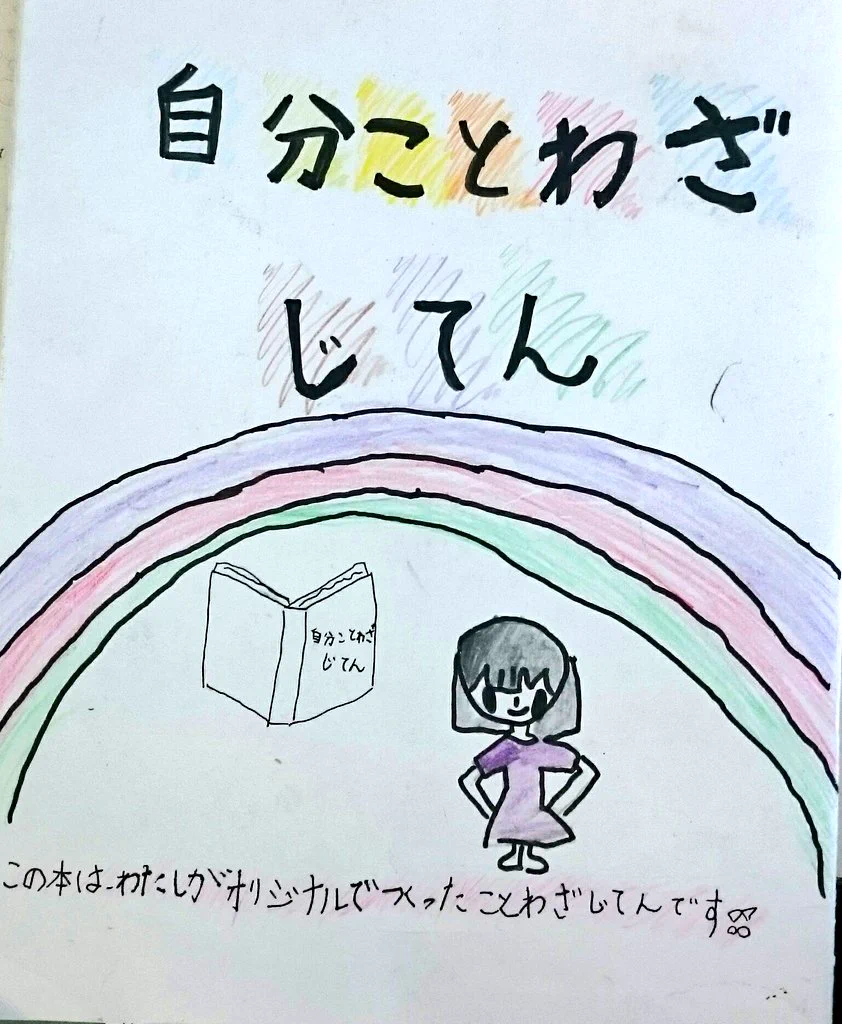 自分ことわざ
じてん
自分ことわざ
じてん
この本は、わたしがオリジナルでつくったことわざじてんです